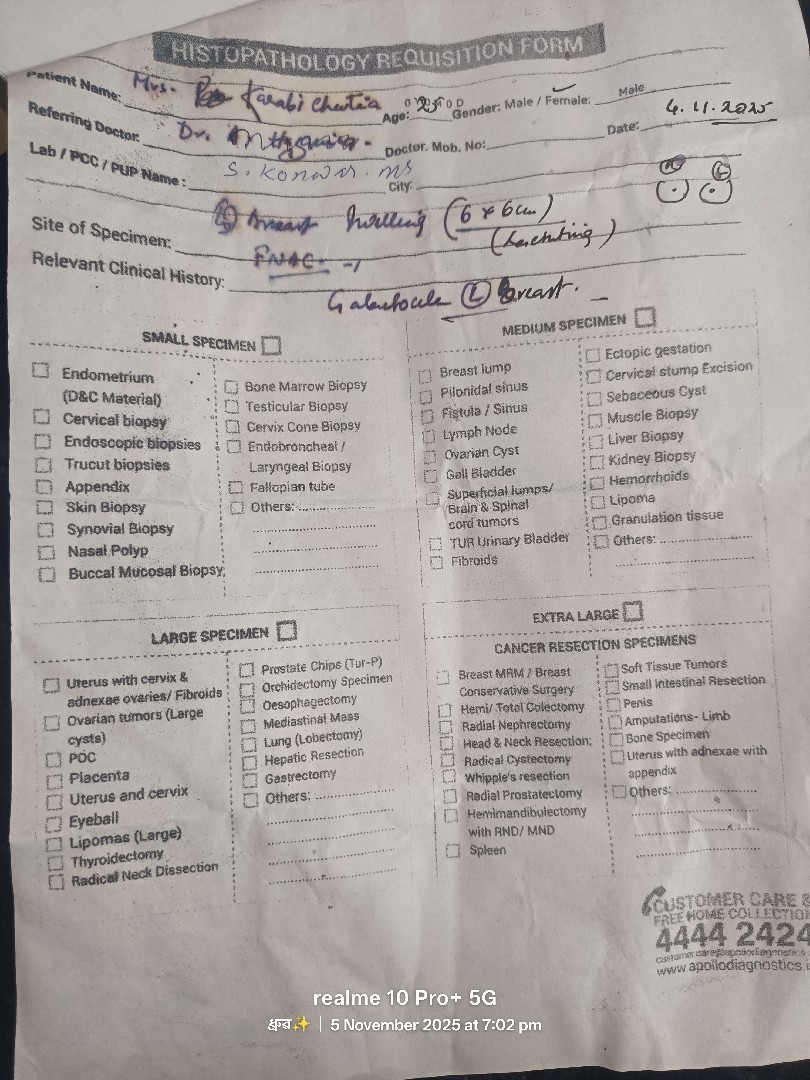 HISTOPATHOLOGY REQUISITION FORM
Patient Name: Mrs. Karabi Chutia Age: 25 Gender: Male / Female: Male
Referring Doctor: Dr. Doctor. Mob. No: Date: 4.11.2025
Lab / PCC / PUP Name: S. Konwar. City:
Site of Specimen: Breast (6 x 6 cm)
(Lactating)
Relevant Clinical History: FNAC
Galactocele (L) Breast.
SMALL SPECIMEN
Endometrium
(D&C Material)
Cervical biopsy
Endoscopic biopsies
Trucut biopsies
Appendix
Skin Biopsy
Synovial Biopsy
Nasal Polyp
Buccal Mucosal Biopsy
Bone Marrow Biopsy
Testicular Biopsy
Cervix Cone Biopsy
Endobroncheal /
Laryngeal Biopsy
Fallopian tube
Others:
MEDIUM SPECIMEN
Breast lump
Pilonidal sinus
Fistula / Sinus
Lymph Node
Ovarian Cyst
Gall Bladder
Superficial lumps/
Brain & Spinal
cord tumors
TUR Urinary Bladder
Fibroids
Ectopic gestation
Cervical stump Excision
Sebaceous Cyst
Muscle Biopsy
Liver Biopsy
Kidney Biopsy
Hemorrhoids
Lipoma
Granulation tissue
Others:
LARGE SPECIMEN
Uterus with cervix &
adnexae ovaries/ Fibroids
Ovarian tumors (Large
cysts)
POC
Placenta
Uterus and cervix
Eyeball
Lipomas (Large)
Thyroidectomy
Radical Neck Dissection
Prostate Chips (Tur-P)
Orchidectomy Specimen
Oesophagectomy
Mediastinal Mass
Lung (Lobectomy)
Hepatic Resection
Gastrectomy
Others:
EXTRA LARGE
CANCER RESECTION SPECIMENS
Breast MRM / Breast
Conservative Surgery
Hemi/ Total Colectomy
Radial Nephrectomy
Head & Neck Resection:
Radical Cystectomy
Whipple's resection
Radial Prostatectomy
Hemimandibulectomy
with RND/ MND
Spleen
Soft Tissue Tumors
Small Intestinal Resection
Penis
Amputations- Limb
Bone Specimen
Uterus with adnexae with
appendix
Others:
CUSTOMER CARE &
FREE HOME COLLECTION
4444 2424
www.apollodiagnostics.i
realme 10 Pro+ 5G
ধ্ৰুৱ✨ | 5 November 2025 at 7:02 pm